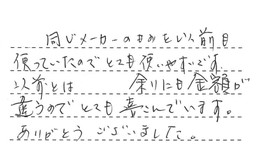 同じメーカーのものを以前も
使っていたのでとても使いやすいです。
以前とは 余りにも金額が
違うのでとても喜こんでいます。
ありがとうございました。